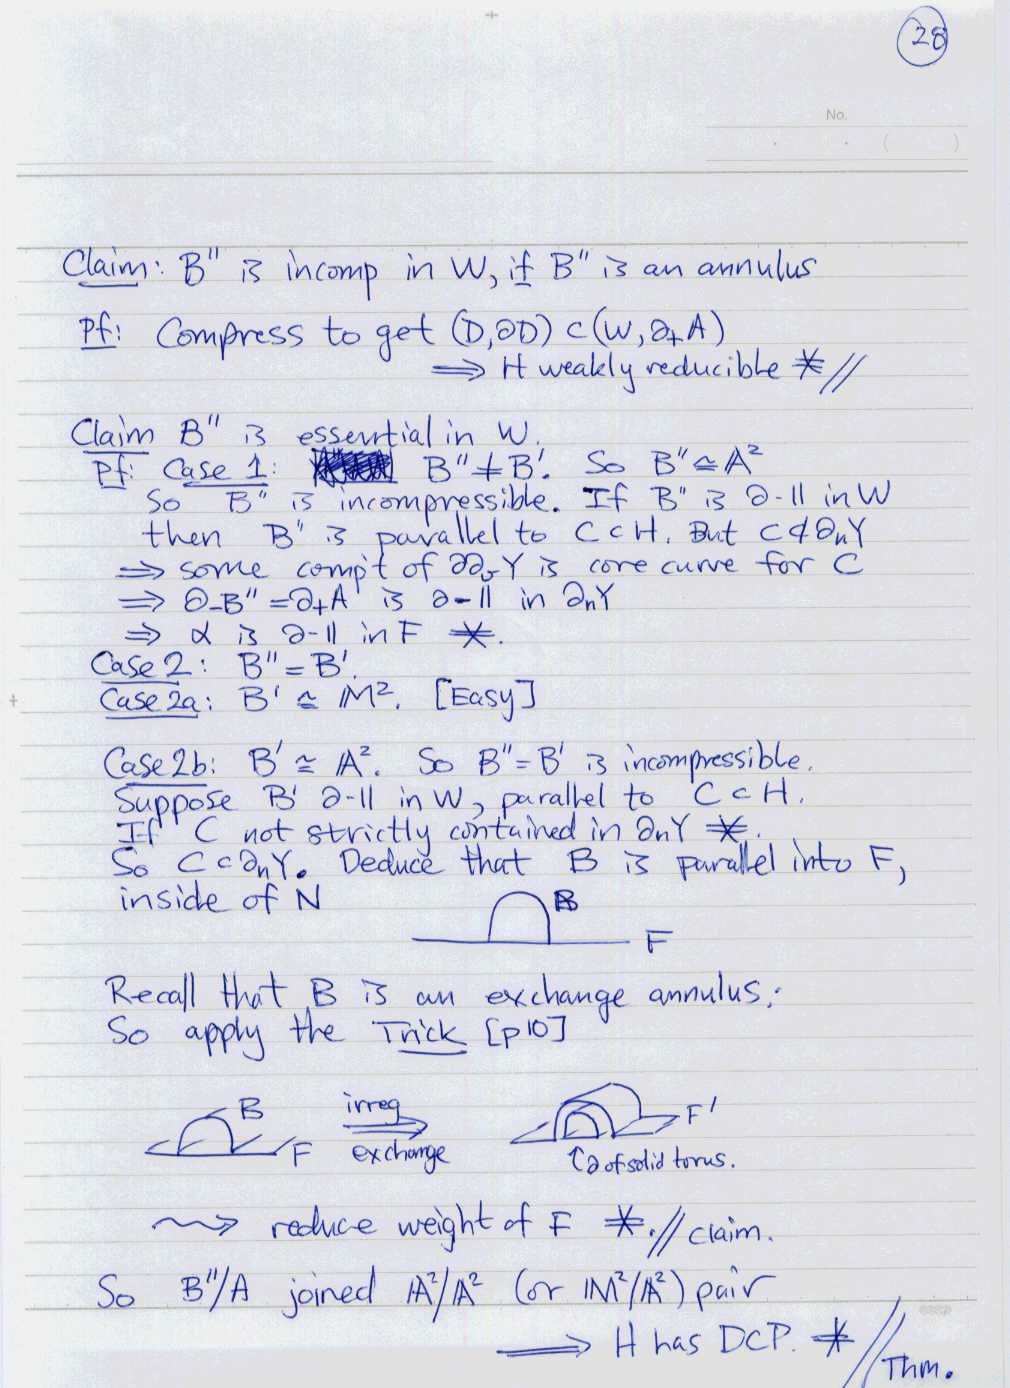 28
No.
Claim: B" is incomp in W, if B" is an annulus
Pf: Compress to get (D,∂D) ⊂ (W,∂₊A)
⟹ H weakly reducible ※ //
Claim B" is essential in W.
Pf: Case 1: B" ≠ B'. So B" ≅ A²
So B" is incompressible. If B" is ∂-|| in W
then B" is parallel to C ⊂ H. But C ⊄ ∂ₕY
⟹ some comp't of ∂∂ᵥY is core curve for C
⟹ ∂₋B" = ∂₊A is ∂-|| in ∂ₕY
⟹ α is ∂-|| in F ※.
Case 2: B" = B'.
Case 2a: B' ≅ M². [Easy]
Case 2b: B' ≅ A². So B" = B' is incompressible.
Suppose B' ∂-|| in W, parallel to C ⊂ H.
If C not strictly contained in ∂ₕY ※.
So C ⊂ ∂ₕY. Deduce that B is parallel into F,
inside of N
B
F
Recall that B is an exchange annulus;
So apply the Trick [p10]
B
F
irreg
exchange
F'
↑∂ of solid torus.
⇝ reduce weight of F ※. // claim.
So B"/A joined A²/A² (or M²/A²) pair
⟹ H has DCP. ※ // Thm.